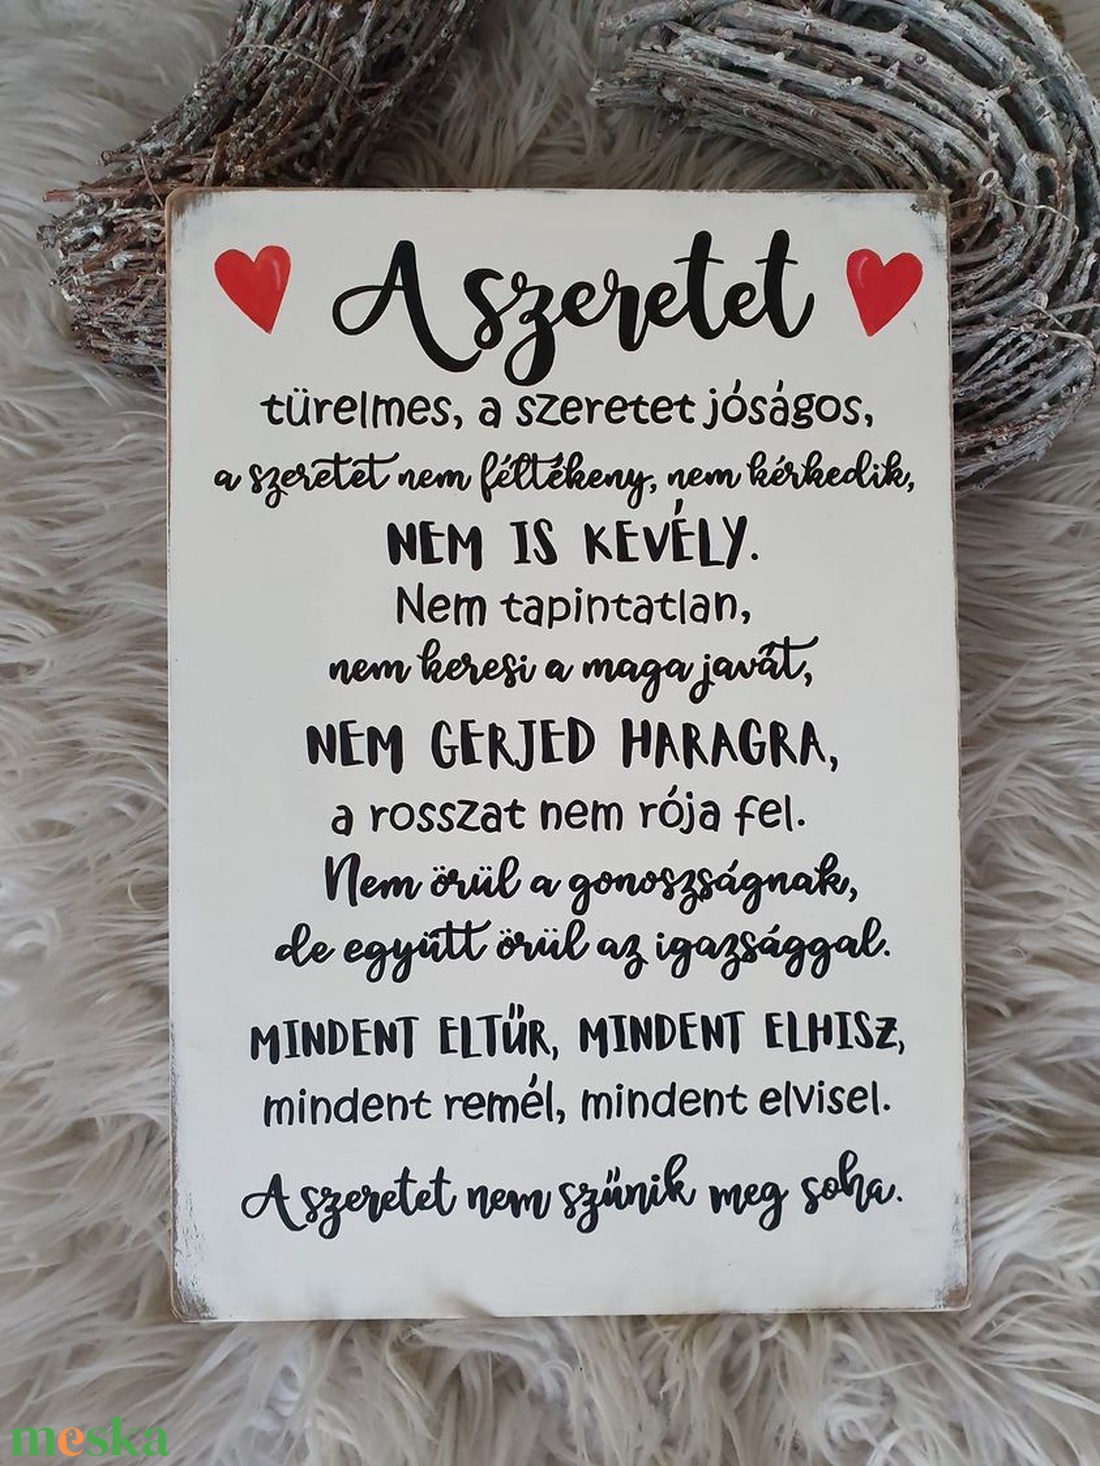 A szeretet
türelmes, a szeretet jóságos,
a szeretet nem féltékeny, nem kérkedik,
NEM IS KEVÉLY.
Nem tapintatlan,
nem keresi a maga javát,
NEM GERJED HARAGRA,
a rosszat nem rója fel.
Nem örül a gonoszságnak,
de együtt örül az igazsággal.
MINDENT ELTŰR, MINDENT ELHISZ,
mindent remél, mindent elvisel.
A szeretet nem szűnik meg soha.
meska